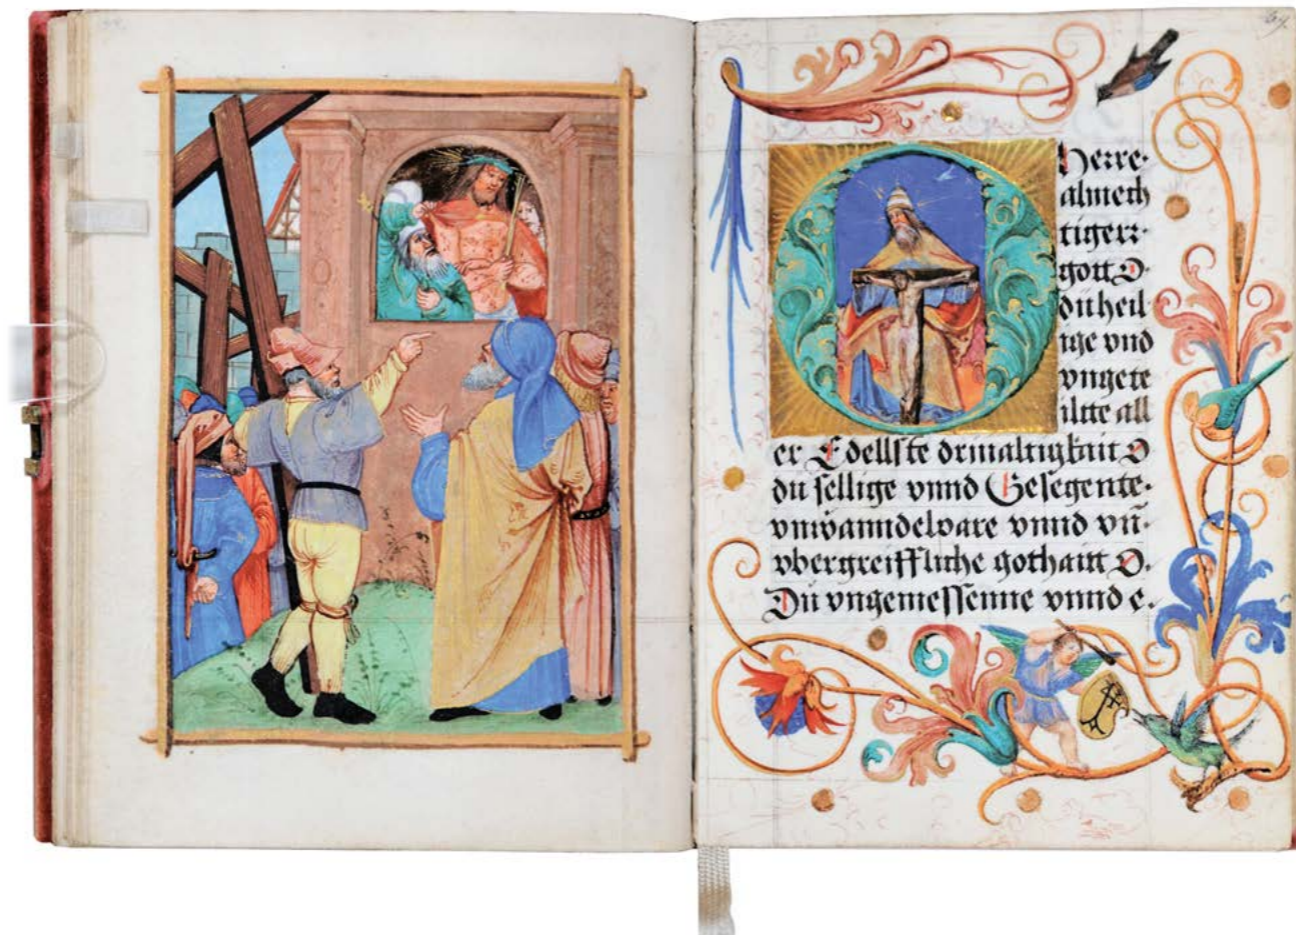 69
O Herre·
almech
tigerr
gott O·
du heil
ige vnd
vngete
iltte all
er Edellste driualtigkait O
du sellige vnnd Gesegente·
vnwanndelbare vnnd vn̄·
vbergreiffliche gothaitt O·
Du vngemessenne vnnd e·